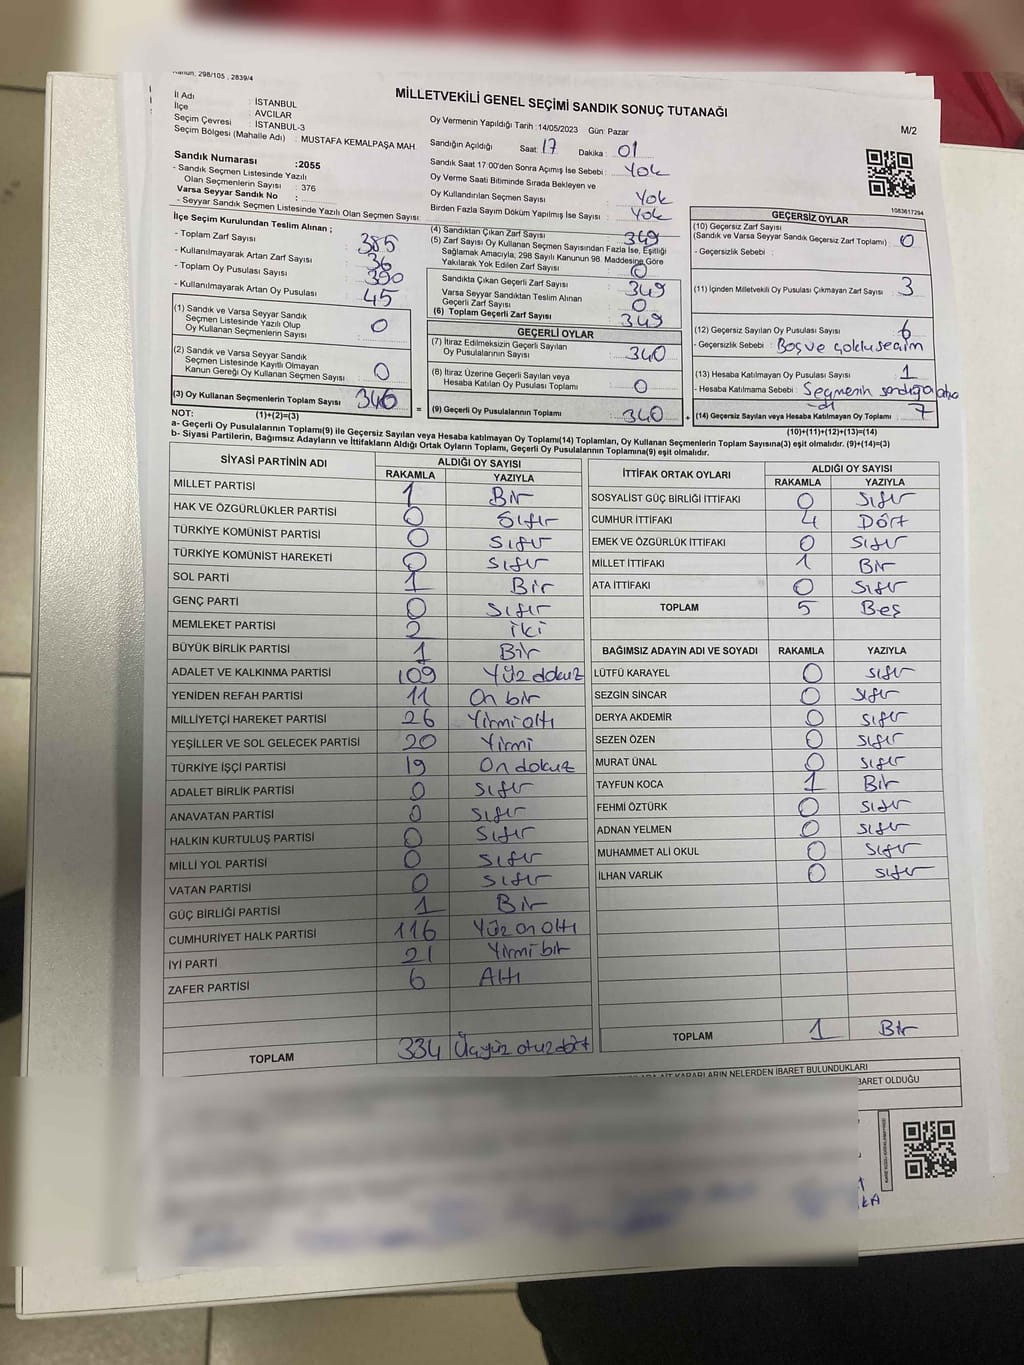 Kanun: 298/105 , 2839/4
MİLLETVEKİLİ GENEL SEÇİMİ SANDIK SONUÇ TUTANAĞI
M/2
İl Adı : İSTANBUL
İlçe : AVCILAR
Seçim Çevresi : İSTANBUL-3
Seçim Bölgesi (Mahalle Adı) : MUSTAFA KEMALPAŞA MAH.
Oy Vermenin Yapıldığı Tarih :14/05/2023 Gün: Pazar
Sandığın Açıldığı Saat: 17 Dakika : 01
Sandık Saat 17:00'den Sonra Açımış İse Sebebi : Yok
Oy Verme Saati Bitiminde Sırada Bekleyen ve
Oy Kullandırılan Seçmen Sayısı : Yok
Birden Fazla Sayım Döküm Yapılmış İse Sayısı : Yok
Sandık Numarası :2055
- Sandık Seçmen Listesinde Yazılı
Olan Seçmenlerin Sayısı : 376
Varsa Seyyar Sandık No :
- Seyyar Sandık Seçmen Listesinde Yazılı Olan Seçmen Sayısı:
1083617294
İlçe Seçim Kurulundan Teslim Alınan ;
- Toplam Zarf Sayısı : 385
- Kullanılmayarak Artan Zarf Sayısı : 36
- Toplam Oy Pusulası Sayısı : 390
- Kullanılmayarak Artan Oy Pusulası : 45
(1) Sandık ve Varsa Seyyar Sandık
Seçmen Listesinde Yazılı Olup
Oy Kullanan Seçmenlerin Sayısı : 0
(2) Sandık ve Varsa Seyyar Sandık
Seçmen Listesinde Kayıtlı Olmayan
Kanun Gereği Oy Kullanan Seçmen Sayısı : 0
(3) Oy Kullanan Seçmenlerin Toplam Sayısı : 346
(4) Sandıktan Çıkan Zarf Sayısı : 349
(5) Zarf Sayısı Oy Kullanan Seçmen Sayısından Fazla İse, Eşitliği
Sağlamak Amacıyla, 298 Sayılı Kanunun 98. Maddesine Göre
Yakılarak Yok Edilen Zarf Sayısı : 0
Sandıkta Çıkan Geçerli Zarf Sayısı : 349
Varsa Seyyar Sandıktan Teslim Alınan
Geçerli Zarf Sayısı : 0
(6) Toplam Geçerli Zarf Sayısı : 349
GEÇERLİ OYLAR
(7) İtiraz Edilmeksizin Geçerli Sayılan
Oy Pusulalarının Sayısı : 340
(8) İtiraz Üzerine Geçerli Sayılan veya
Hesaba Katılan Oy Pusulası Toplamı : 0
= (9) Geçerli Oy Pusulalarının Toplamı : 340 +
GEÇERSİZ OYLAR
(10) Geçersiz Zarf Sayısı
(Sandık ve Varsa Seyyar Sandık Geçersiz Zarf Toplamı) : 0
- Geçersizlik Sebebi :
(11) İçinden Milletvekili Oy Pusulası Çıkmayan Zarf Sayısı : 3
(12) Geçersiz Sayılan Oy Pusulası Sayısı : 6
- Geçersizlik Sebebi : Boş ve çoklu seçim
(13) Hesaba Katılmayan Oy Pusulası Sayısı : 1
- Hesaba Katılmama Sebebi : Seçmenin sandığa
(14) Geçersiz Sayılan veya Hesaba Katılmayan Oy Toplamı : 7
NOT: (1)+(2)=(3) (10)+(11)+(12)+(13)=(14)
a- Geçerli Oy Pusulalarının Toplamı(9) ile Geçersiz Sayılan veya Hesaba katılmayan Oy Toplamı(14) Toplamları, Oy Kullanan Seçmenlerin Toplam Sayısına(3) eşit olmalıdır. (9)+(14)=(3)
b- Siyasi Partilerin, Bağımsız Adayların ve İttifakların Aldığı Ortak Oyların Toplamı, Geçerli Oy Pusulalarının Toplamına(9) eşit olmalıdır.
SİYASİ PARTİNİN ADI ALDIĞI OY SAYISI
RAKAMLA YAZIYLA
MİLLET PARTİSİ 1 Bir
HAK VE ÖZGÜRLÜKLER PARTİSİ 0 Sıfır
TÜRKİYE KOMÜNİST PARTİSİ 0 Sıfır
TÜRKİYE KOMÜNİST HAREKETİ 0 Sıfır
SOL PARTİ 1 Bir
GENÇ PARTİ 0 Sıfır
MEMLEKET PARTİSİ 2 iki
BÜYÜK BİRLİK PARTİSİ 1 Bir
ADALET VE KALKINMA PARTİSİ 109 Yüz dokuz
YENİDEN REFAH PARTİSİ 11 On bir
MİLLİYETÇİ HAREKET PARTİSİ 26 Yirmi altı
YEŞİLLER VE SOL GELECEK PARTİSİ 20 Yirmi
TÜRKİYE İŞÇİ PARTİSİ 19 On dokuz
ADALET BİRLİK PARTİSİ 0 Sıfır
ANAVATAN PARTİSİ 0 Sıfır
HALKIN KURTULUŞ PARTİSİ 0 Sıfır
MİLLİ YOL PARTİSİ 0 Sıfır
VATAN PARTİSİ 0 Sıfır
GÜÇ BİRLİĞİ PARTİSİ 1 Bir
CUMHURİYET HALK PARTİSİ 116 Yüz on altı
İYİ PARTİ 21 Yirmi bir
ZAFER PARTİSİ 6 Altı
TOPLAM 334 Üçyüz otuz dört
İTTİFAK ORTAK OYLARI ALDIĞI OY SAYISI
RAKAMLA YAZIYLA
SOSYALİST GÜÇ BİRLİĞİ İTTİFAKI 0 Sıfır
CUMHUR İTTİFAKI 4 Dört
EMEK VE ÖZGÜRLÜK İTTİFAKI 0 Sıfır
MİLLET İTTİFAKI 1 Bir
ATA İTTİFAKI 0 Sıfır
TOPLAM 5 Beş
BAĞIMSIZ ADAYIN ADI VE SOYADI RAKAMLA YAZIYLA
LÜTFÜ KARAYEL 0 Sıfır
SEZGİN SİNCAR 0 Sıfır
DERYA AKDEMİR 0 Sıfır
SEZEN ÖZEN 0 Sıfır
MURAT ÜNAL 0 Sıfır
TAYFUN KOCA 1 Bir
FEHMİ ÖZTÜRK 0 Sıfır
ADNAN YELMEN 0 Sıfır
MUHAMMET ALİ OKUL 0 Sıfır
İLHAN VARLIK 0 Sıfır
TOPLAM 1 Bir
KARARLARIN NELERDEN İBARET BULUNDUKLARI
İBARET OLDUĞU